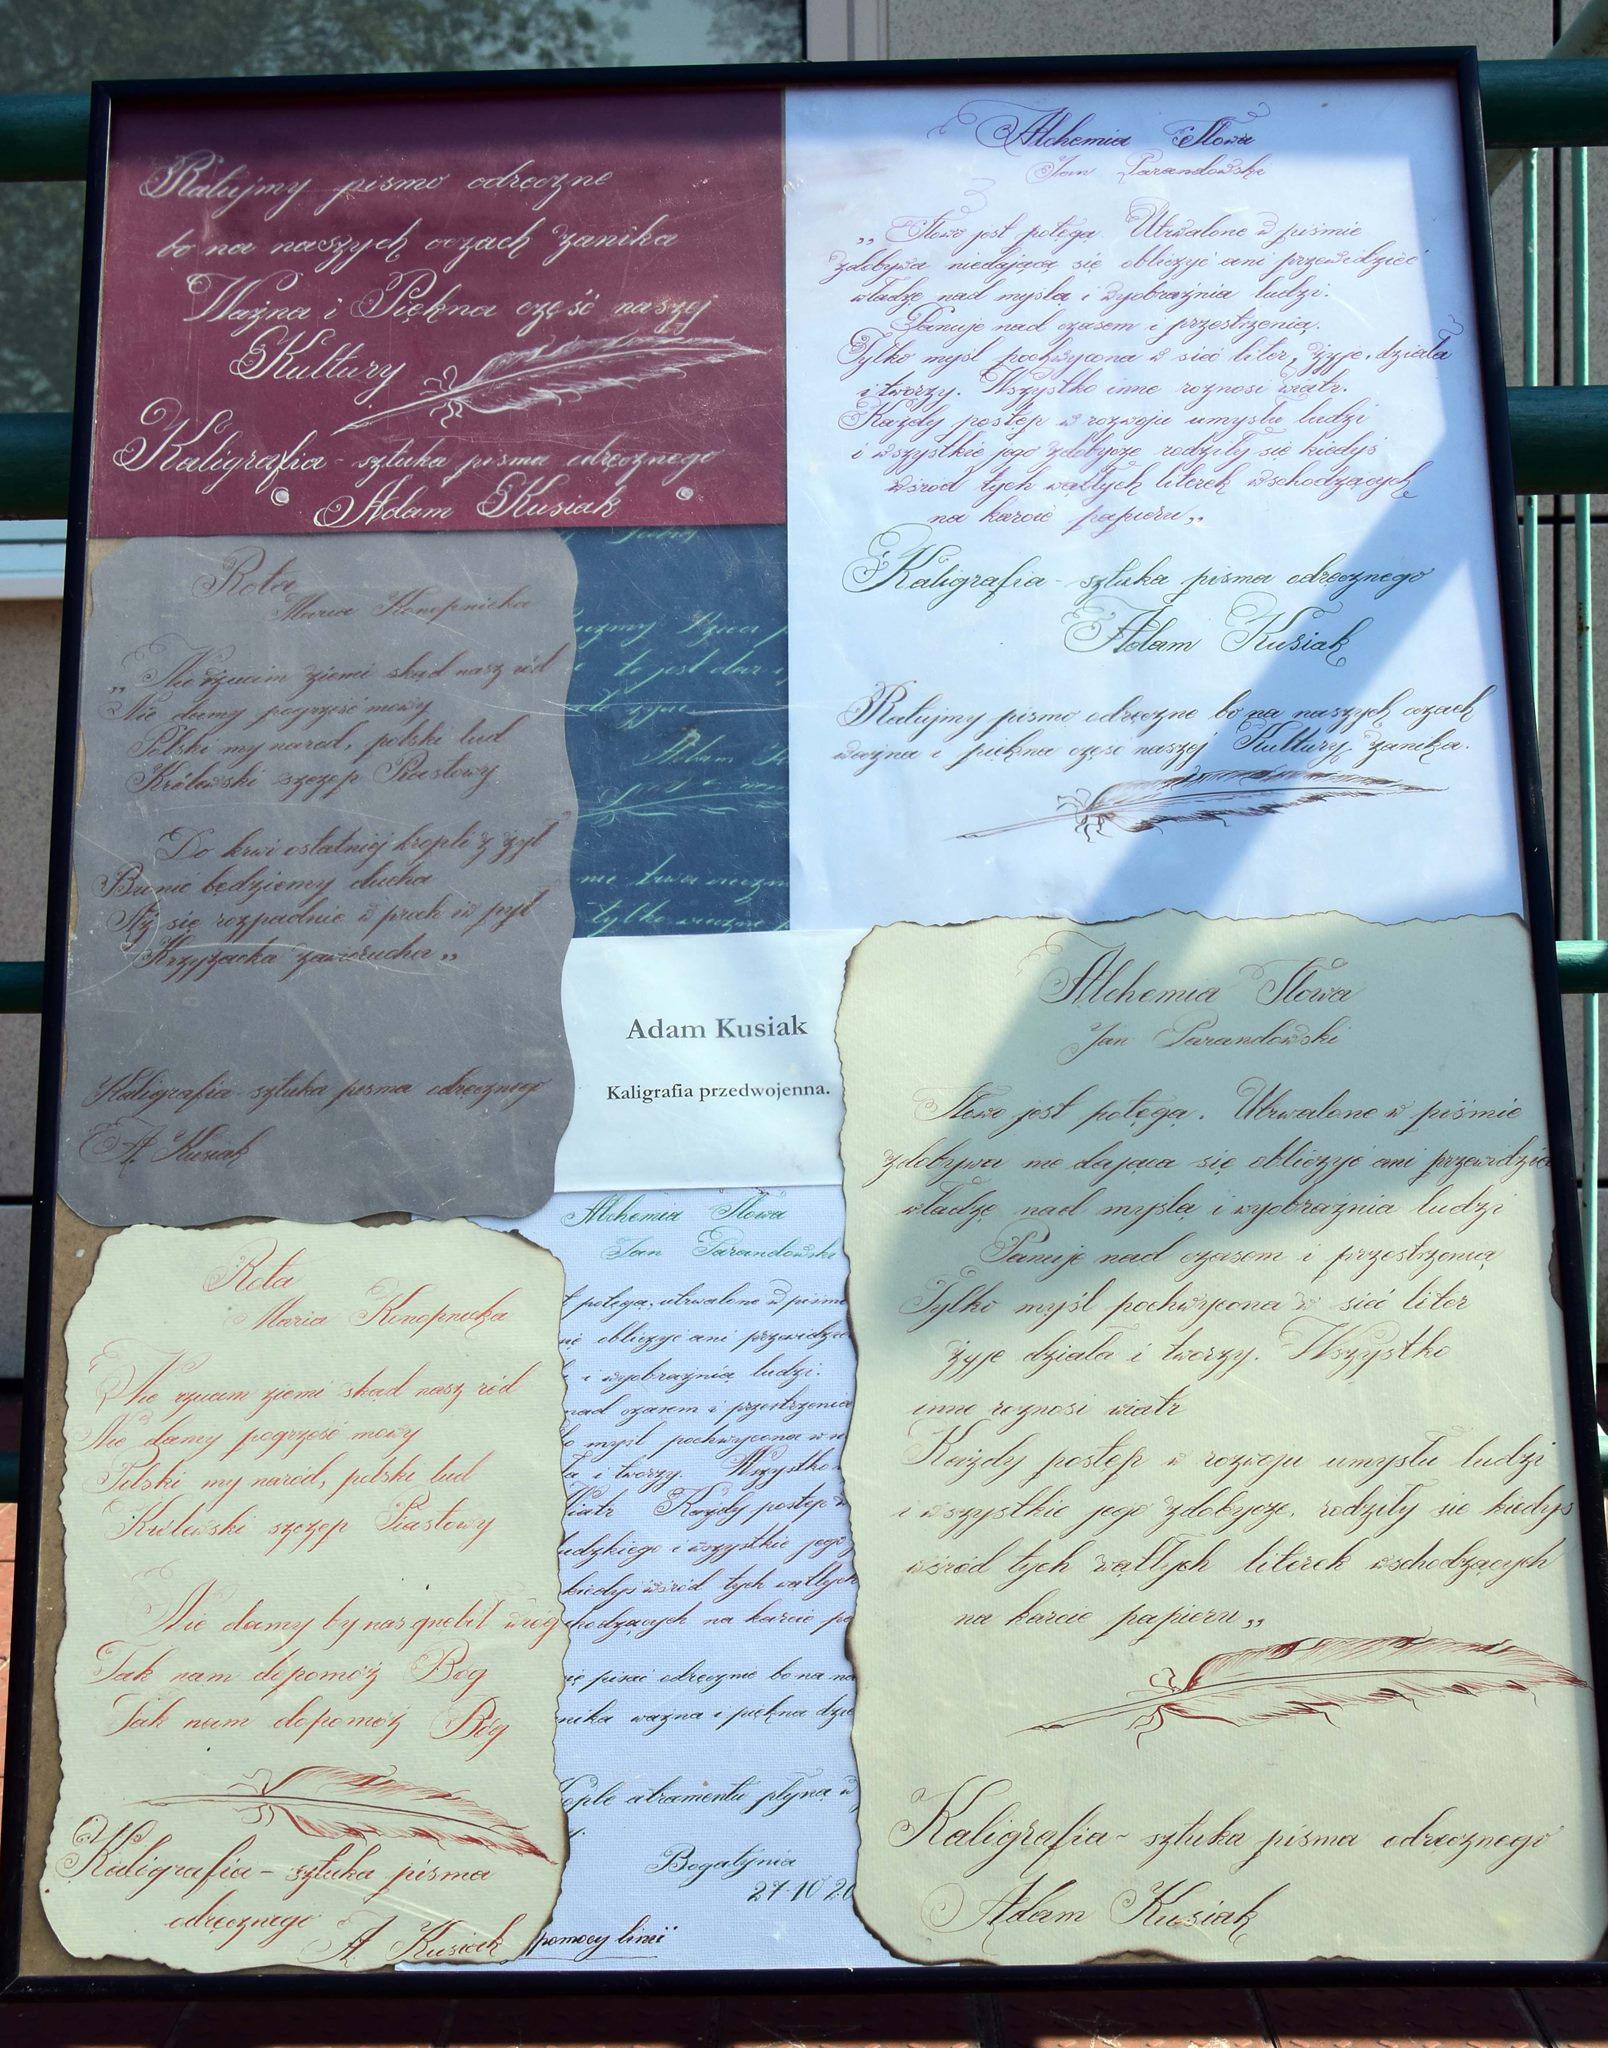 Ratujmy pismo odręczne
bo na naszych oczach zanika
Ważna i Piękna część naszej
Kultury
Kaligrafia - sztuka pisma odręcznego
Adam Kusiak
Alchemia Słowa
Jan Parandowski
„Słowo jest potęgą. Utrwalone w piśmie
zdobywa niedającą się obliczyć ani przewidzieć
władzę nad myślą i wyobraźnia ludzi.
Panuje nad czasem i przestrzenią.
Tylko myśl pochwycona w sieć liter, żyje, działa
i tworzy. Wszystko inne roznosi wiatr.
Każdy postęp w rozwoju umysłu ludzi
i wszystkie jego zdobycze rodziły się kiedyś
wśrod tych wątłych literek wschodzących
na karcie papieru„
Kaligrafia - sztuka pisma odręcznego
Adam Kusiak
Ratujmy pismo odręczne bo na naszych oczach
ważna i piękna część naszej Kultury zanika.
Rota
Maria Konopnicka
„Nie rzucim ziemi skąd nasz ród
Nie damy pogrześć mowy
Polski my narod, polski lud
Królewski szczep Piastowy
Do krwi ostatniej kropli z żył
Bronić będziemy ducha
Aż się rozpadnie w proch i w pył
Krzyżacka zawierucha„
Kaligrafia - sztuka pisma odręcznego
A. Kusiak
to jest dar
Adam
me trwa
tylko
Adam Kusiak
Kaligrafia przedwojenna.
Rota
Maria Konopnicka
Nie rzucim ziemi skąd nasz ród
Nie damy pogrześć mowy
Polski my naród, polski lud
Królewski szczep Piastowy
Nie damy by nas gnebił wrog
Tak nam dopomóż Bóg
Tak nam dopomóż Bóg
Kaligrafia - sztuka pisma
odręcznego
A. Kusiak
Alchemia Słowa
Jan Parandowski
potęgą, utrwalone w piśmie
obliczyć ani przewidzie
i wyobraźnią ludzi.
nad czasem i przestrzenia
myśl pochwycona w
i tworzy. Wszystko
wiatr Każdy postęp w
udzkiego i wszystkie jego
kiedyś wśród tych wątłych
chodzących na karcie pa
pisać odręcznie bo na na
nika ważna i piękna dzie
ople atramentu płyną w
Bogatynia
27.10 20
pomocy linii
Alchemia Słowa
Jan Parandowski
Słowo jest potęgą. Utrwalone w piśmie
zdobywa nie dająca się obliczyć ani przewidzieć
władzę nad myślą i wyobraźnia ludzi
Panuje nad czasem i przestrzenią
Tylko myśl pochwycona w sieć liter
żyje działa i tworzy. Wszystko
inne roznosi wiatr
Każdy postęp w rozwoju umysłu ludzi
i wszystkie jego zdobycze, rodziły się kiedyś
wśród tych wątłych literek wschodzących
na karcie papieru„
Kaligrafia - sztuka pisma odręcznego
Adam Kusiak